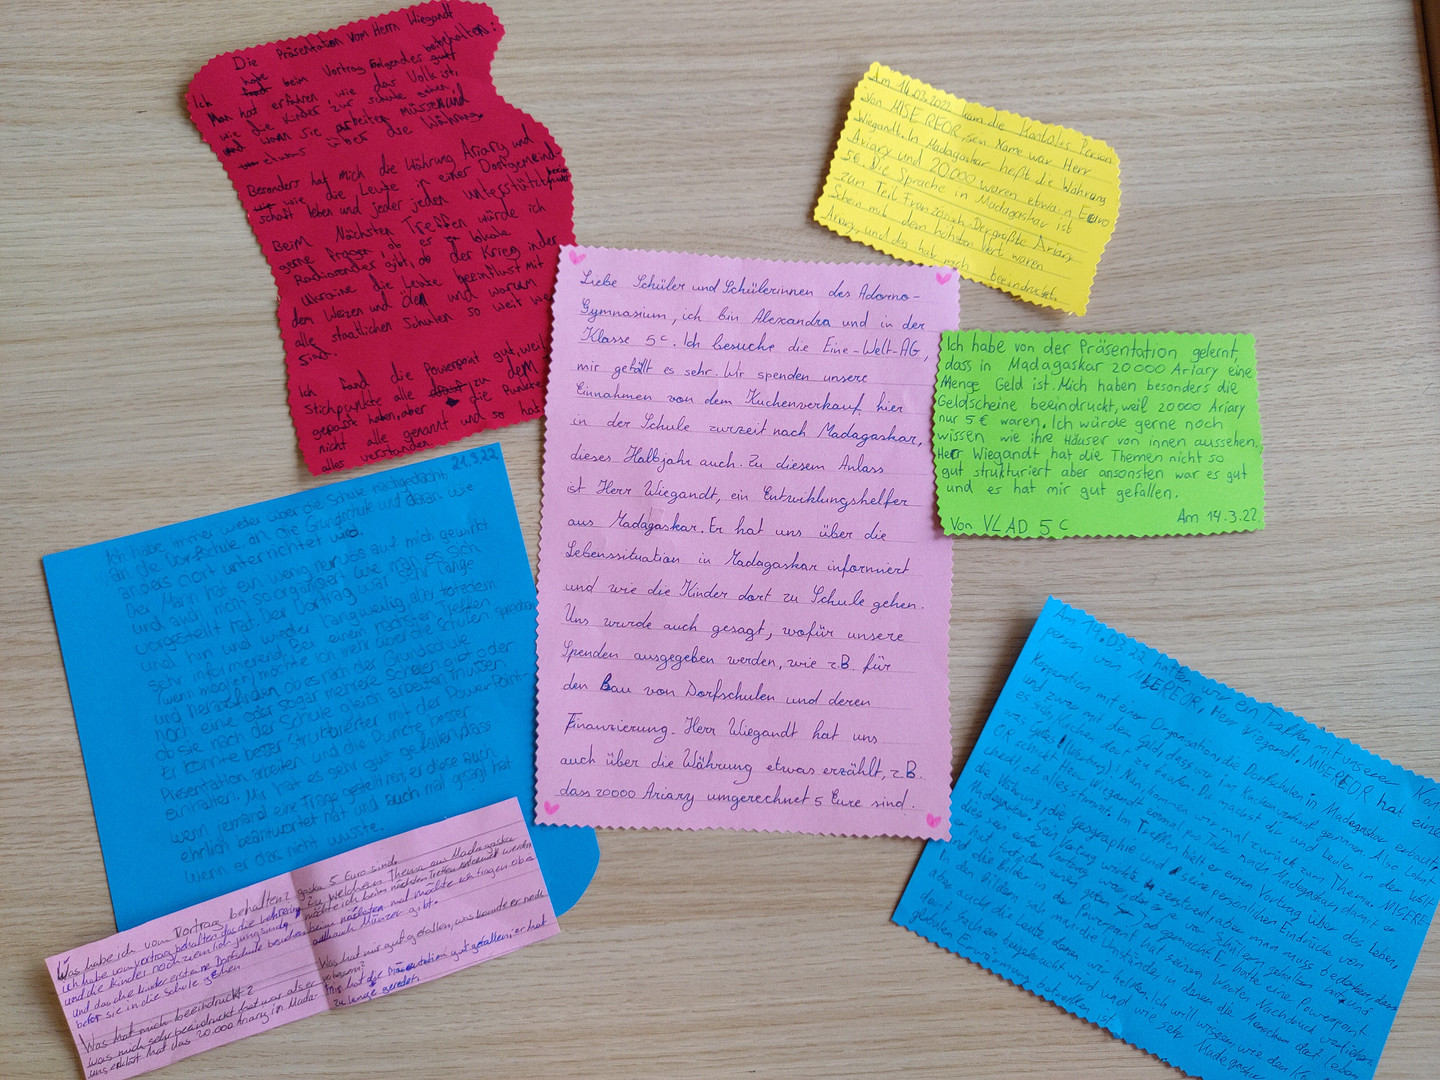 Die Präsentation Vom Herrn Wiegandt
Ich habe beim Vortrag Folgendes gut beinhalten:
Man hat erfahren wie das Volk ist,
wie die Kinder zur schule gehen,
und wann sie arbeiten müssen und
etwas über die Währung.
Besonders hat mich die Währung Ariary und
wie die Leute in einer Dorfgemein-
schaft leben und jeder jeden Unterstützt
Beim Nächsten Treffen würde ich
gerne fragen, ob es lokale
Radiosender gibt, ob der Krieg in der
Ukraine die Leute beeinflust mit
dem Weizen und und warum
alle staatlichen Schulen so weit
sind.
Ich fand die Powerpoint gut, weil
Stichpunkte alle zu dem
gepasst haben, aber die Punkte
nicht alle genannt und so hat
alles verstanden
Am 14.03.2022 kam die
von MISEREOR sein Name war Herr
Wiegandt. In Madagaskar heißt die Währung
Ariary und 20000 waren etwa Euro
5€. Die Sprache in Madagaskar ist
zum Teil Französisch. Der größte Ariary
Schein mit dem höhsten Wert waren
Ariary, und das hat mich beeindrucket.
Liebe Schüler und Schülerinnen des Adorno-
Gymnasium, ich bin Alexandra und in der
Klasse 5c. Ich besuche die Eine-Welt-AG,
mir gefällt es sehr. Wir spenden unsere
Einnahmen von dem Kuchenverkauf hier
in der Schule zurzeit nach Madagaskar,
dieses Halbjahr auch. Zu diesem Anlass
ist Herr Wiegandt, ein Entwicklungshelfer
aus Madagaskar. Er hat uns über die
Lebenssituation in Madagaskar informiert
und wie die Kinder dort zu Schule gehen.
Uns wurde auch gesagt, wofür unsere
Spenden ausgegeben werden, wie z.B. für
den Bau von Dorfschulen und deren
Finanzierung. Herr Wiegandt hat uns
auch über die Währung etwas erzählt, z.B.
dass 20000 Ariary umgerechnet 5 Eure sind.
Ich habe von der Präsentation gelernt,
dass in Madagaskar 20000 Ariary eine
Menge Geld ist. Mich haben besonders die
Geldscheine beeindruckt, weil 20000 Ariary
nur 5€ waren. Ich würde gerne noch
wissen wie ihre Häuser von innen aussehen.
Herr Wiegandt hat die Themen nicht so
gut strukturiert aber ansonsten war es gut
und es hat mir gut gefallen.
Am 14.3.22
Von VLAD 5c
21.3.22
Ich habe immer wieder über die Schule nachgedacht,
an die Vorschule, an die Grundschule und daran wie
anders dort unterrichtet wird.
Der Mann hat ein wenig nervös auf mich gewirkt
und auch nicht so organisiert wie man es sich
vorgestellt hat. Der Vortrag war sehr lange
und hin und wieder langweilig aber trotzdem
sehr informierend. Bei einem nächsten Treffen
(wenn möglich) möchte ich mehr über die Schulen sprechen
und herausfinden ob es nach der Grundschule
noch eine oder sogar mehrere Schulen gibt oder
ob sie nach der Schule gleich arbeiten müssen.
Er könnte besser strukturierter mit der PowerPoint-
Präsentation arbeiten und die Punkte besser
einhalten. Mir hat es sehr gut gefallen, dass
wenn jemand eine Frage gestellt hat er diese auch
ehrlich beantwortet hat und auch mal gesagt hat
wenn er das nicht wusste.
Was habe ich vom Vortrag behalten?
ich habe vom vortrag behalten das die
und die kinder noch ziemlich jung sind
und das die kinder erst eine Dorfschule besuchen
befor sie in die schule gehen
Was hat mich beeindruckt?
was mich sehr beeindruckt hat war als er
uns erklärt hat das 20.000 Ariary in Mada-
gaska 5 Euro sind.
Zu welchem Thema aus Madagaska
möchte ich beim nächsten Treffen informiert werden
beim nächsten mal möchte ich fragen obe
auch Münzer gibt.
Was hat mir gut gefallen, was konnte er noch
Mir hat die Präsentation gut gefallen, er hat
zu lange geredet.
Am 14.03.22 hatten wir ein Treffen mit unserer Kon
person von MISEREOR, Herr Wiegandt. MISEREOR hat eine
Kooperation mit einer Organisation die Dorfschulen in Madagaskar erbaut,
und zwar mit dem geld, dass wir im Kuchenverkauf gewonnen. Also Lohnt
es sich Kuchen dort zu kaufen. Du machst dir und Leuten in der Welt
was gutes (Werbung)! Nun, kommen wir mal zurück zum Thema. MISERE-
OR schickt Herr Wiegandt einmal pro Jahr nach Madagaskar, damit er
checkt, ob alles stimmt. Im Treffen hielt er einen Vortrag über das Leben,
die Währung, die geographie und seine persönlichen Eindrücke von
Madagaskar. Sein Vortrag wirkte zerstreut, aber man muss bedenken, dass
dies sein erster Vortrag war, den er je vor Schülern gehalten hat, und
er hat trotzdem einen guten Job gemacht. Er hatte eine Powerpoint
und die Bilder in der Powerpoint hat seinen Worten Nachdruck verliehen.
In den Bildern sah man die Umstände in denen die Menschen dort leben
aber auch die Leute denen wir helfen. Ich will wissen, wie den
dort Sachen beigebracht wird und wie sehr Madagaskar
globalen Erwärmung betroffen ist.